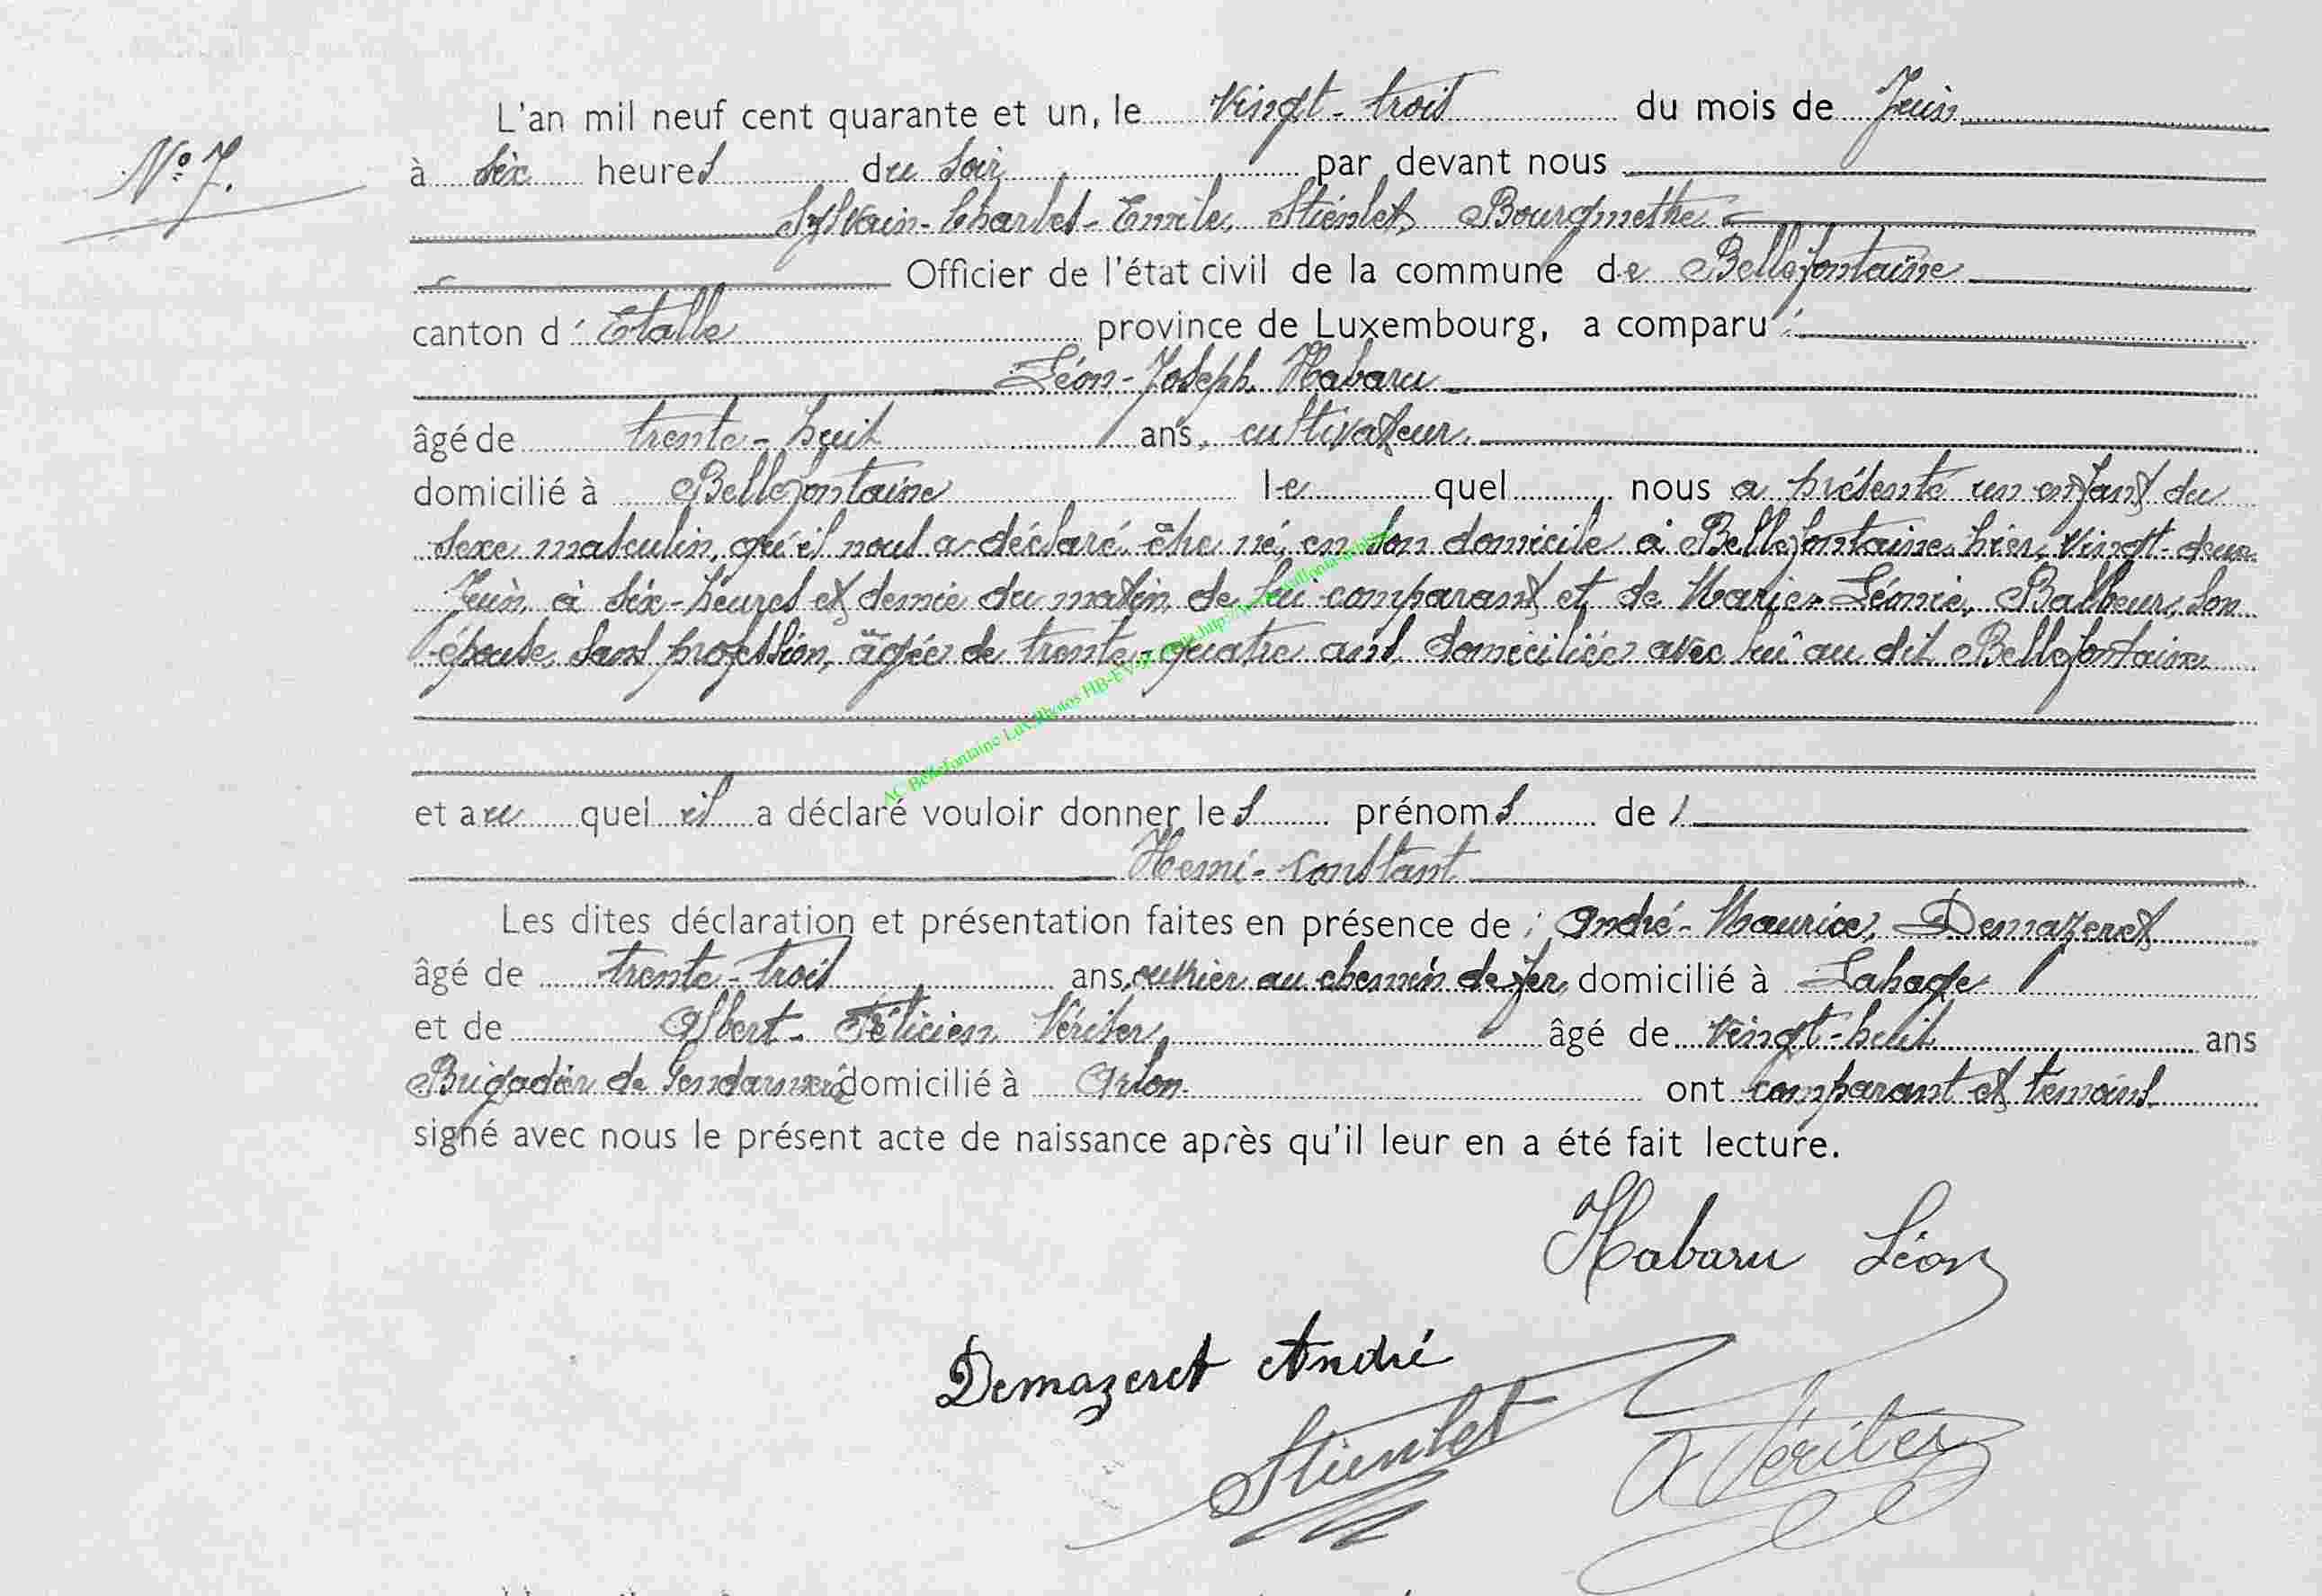 L'an mil neuf cent quarante et un, le vingt-trois du mois de Juin
N° 7.
à six heures du soir par devant nous
Sylvain-Charles-Emile, Stiénlet, Bourgmestre
Officier de l'état civil de la commune de Bellefontaine
canton d'Etalle province de Luxembourg, a comparu :
Léon-Joseph, Habaru
âgé de trente-huit ans, cultivateur,
domicilié à Bellefontaine lequel nous a présenté un enfant du
sexe masculin, qu'il nous a déclaré être né, en son domicile à Bellefontaine, hier, vingt-deux
Juin, à six-heures et demie du matin, de lui comparant et de Marie-Léonie, Balbeur, son
épouse, sans profession, âgée de trente-quatre ans, domiciliée avec lui au dit Bellefontaine
AC Bellefontaine Lux Photos HB-EV
et au quel il a déclaré vouloir donner les prénoms de :
Henri-Constant
Les dites déclaration et présentation faites en présence de : André-Maurice, Demazeret
âgé de trente-trois ans, ouvrier au chemin de fer, domicilié à Lahage
et de Albert-Félicien, Vériter, âgé de vingt-huit ans
Brigadier de Gendarmerie domicilié à Arlon ont comparant et témoins
signé avec nous le présent acte de naissance après qu'il leur en a été fait lecture.
Habaru Léon
Demazeret André
Stienlet
A Vériter